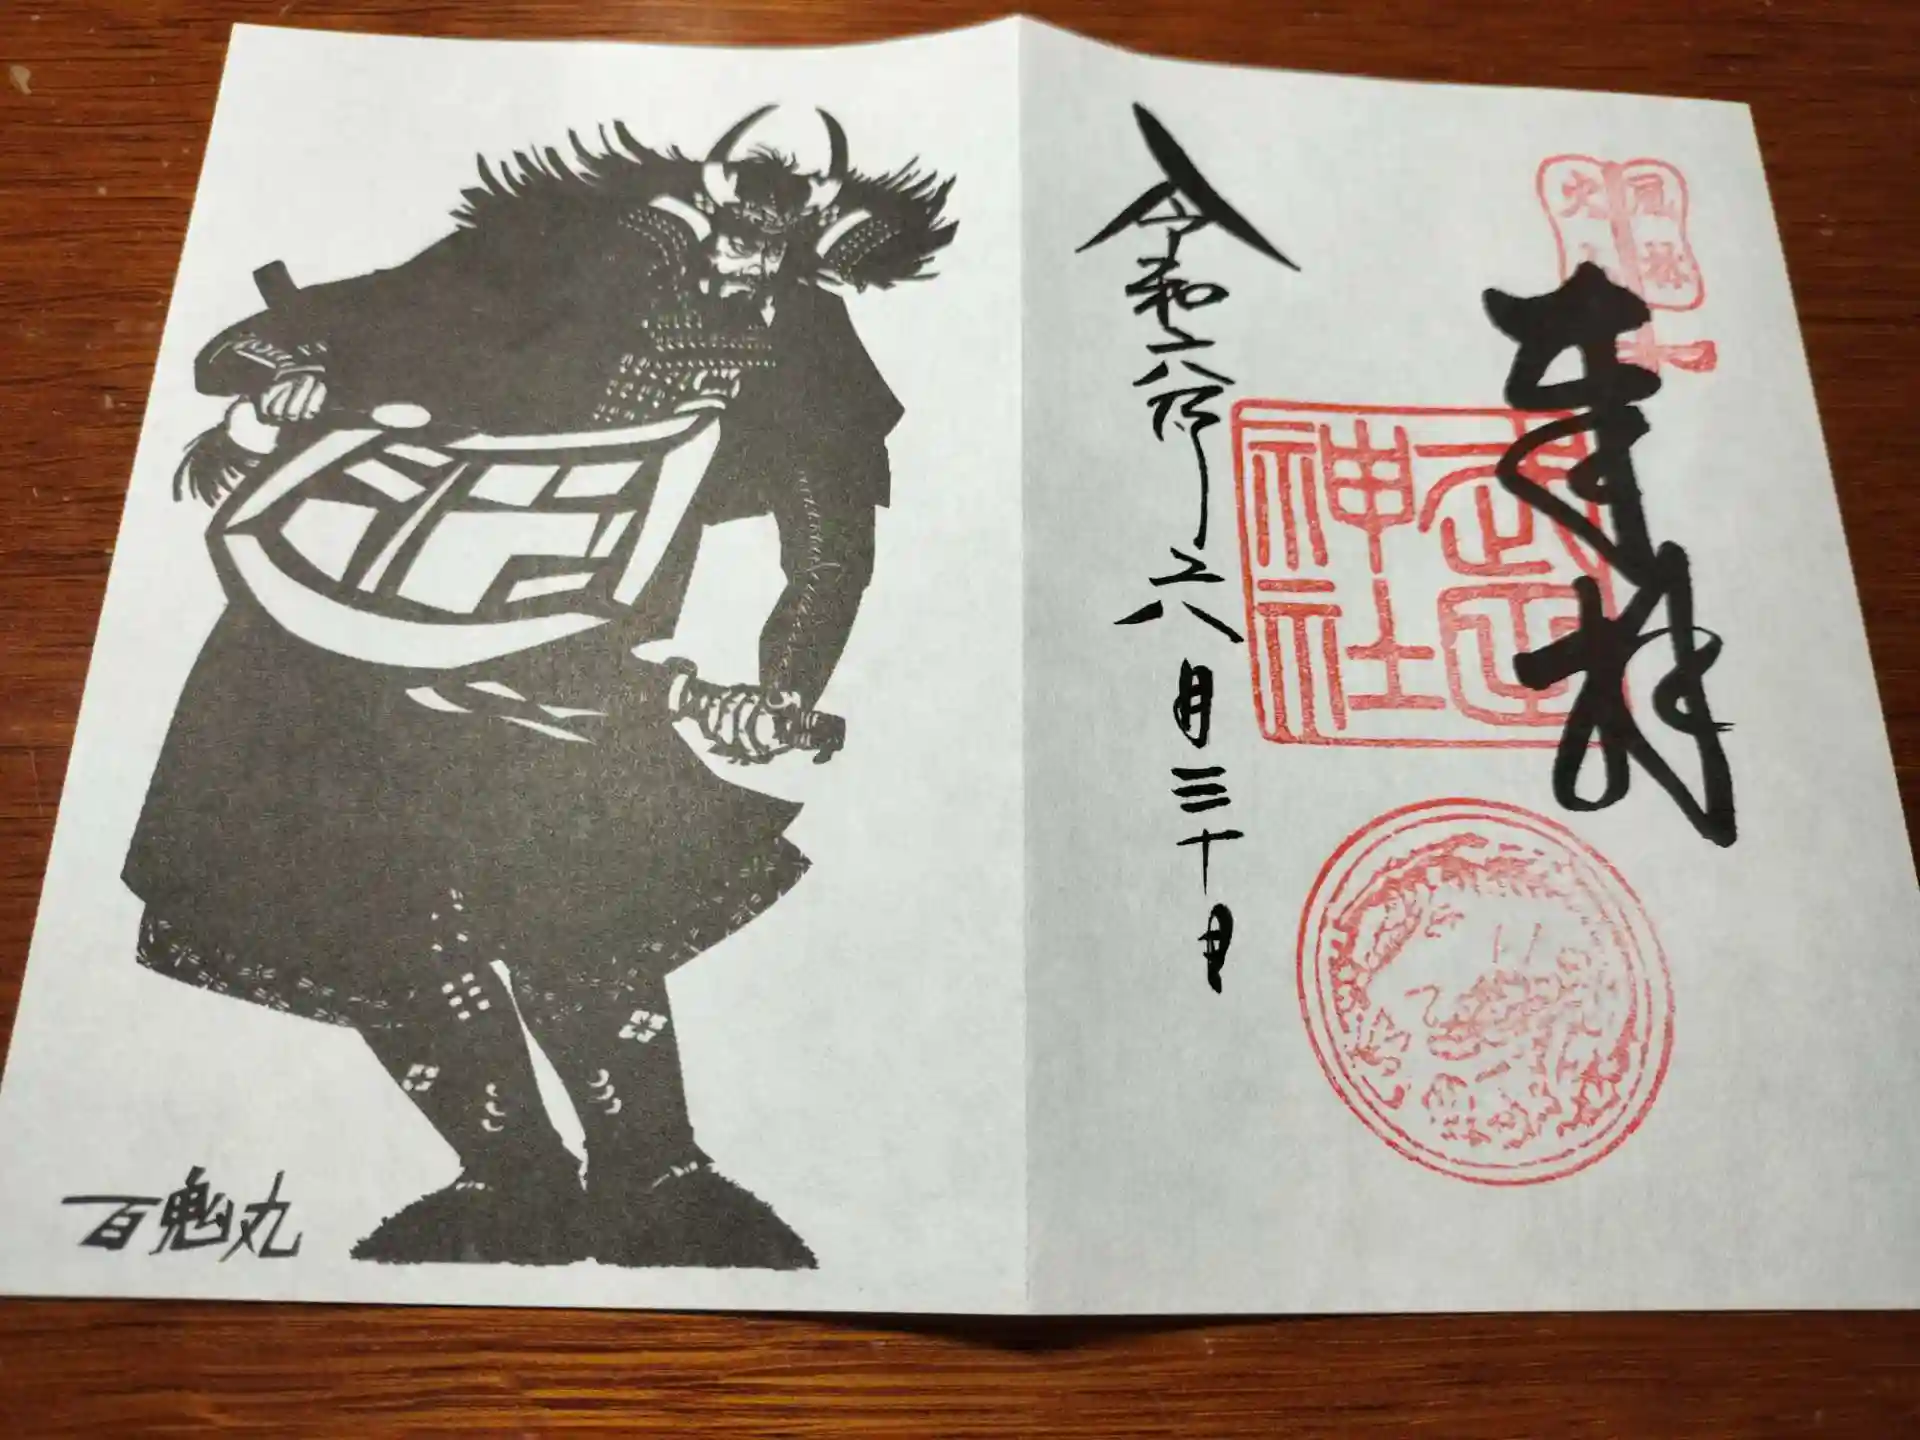 奉拝
風林
火
武田
神社
令和六年六月三十日
百鬼丸